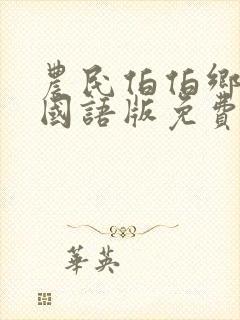 農民伯伯鄉
國語版免費
華英